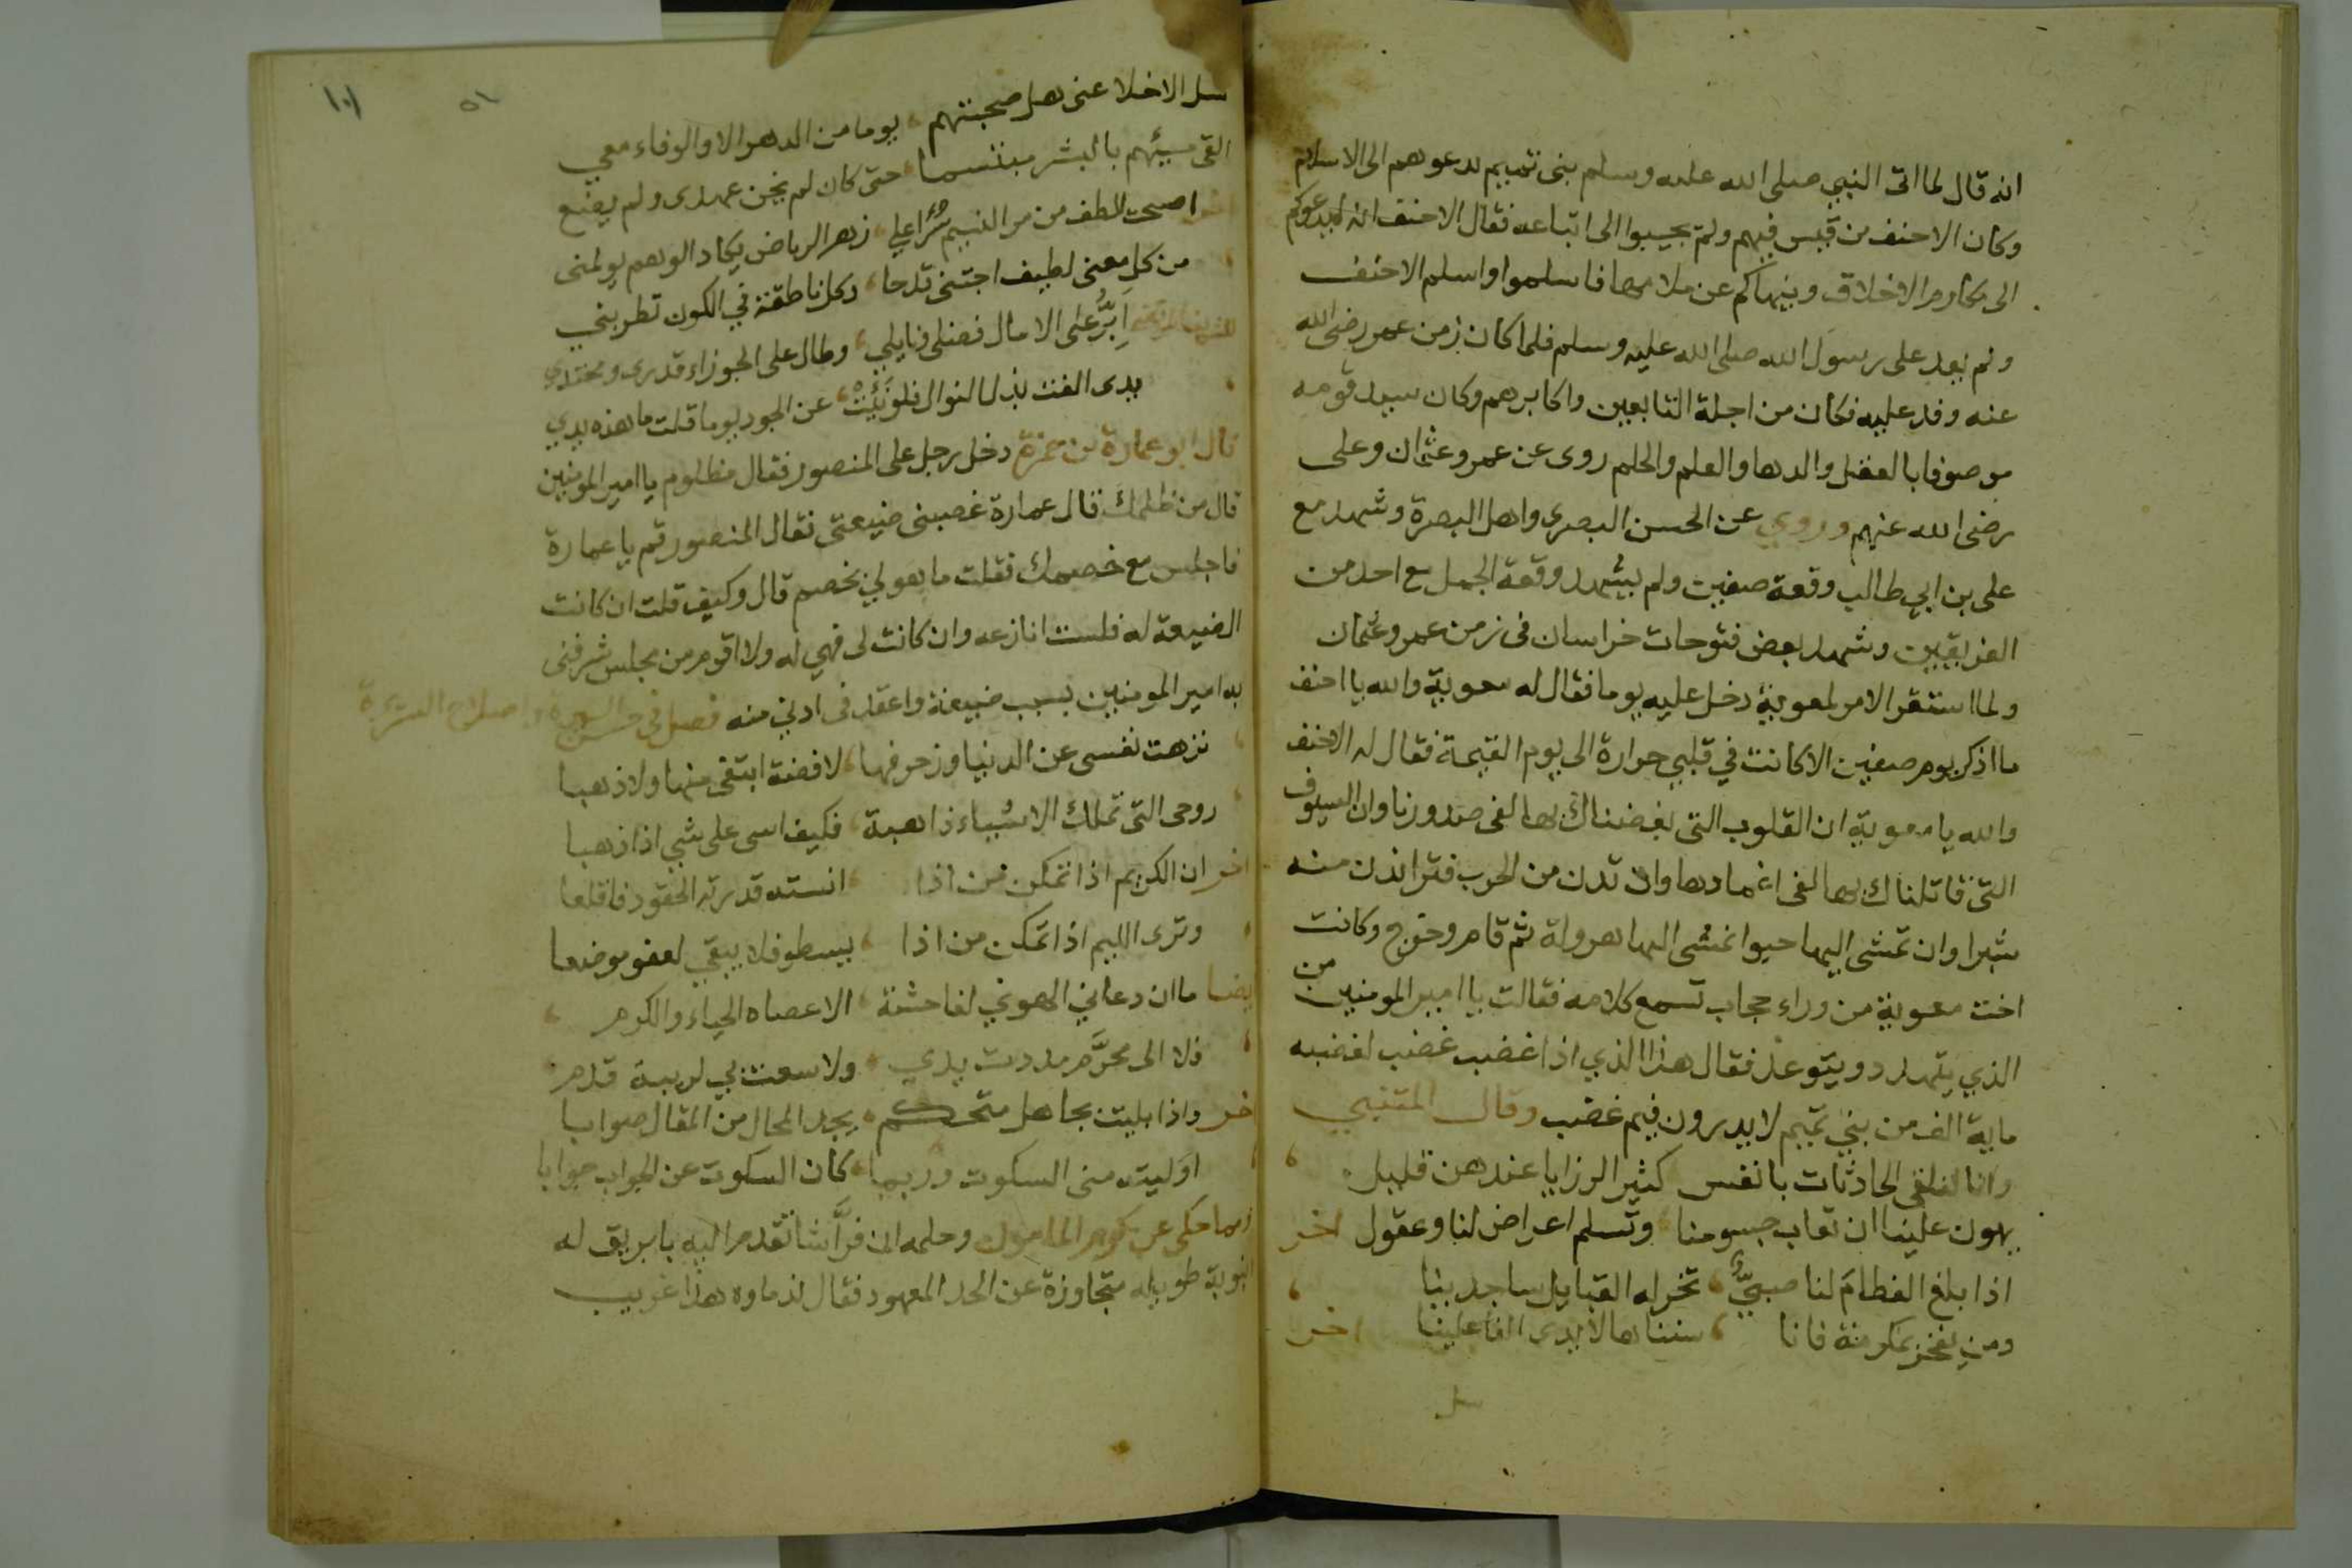 انه قال لما اتى النبي صلى الله عليه وسلم بنى تميم يدعوهم الى الاسلام
وكان الاحنف من قيس فيهم ولم يجيبوا الى اتباعه فقال الاحنف انه ليدعوكم
الى مكارم الاخلاق وينهاكم عن ملامها فاسلموا واسلم الاحنف
ولم يفد على رسول الله صلى الله عليه وسلم فلما كان زمن عمر رضى الله
عنه وفد عليه فكان من اجلة التابعين واكابرهم وكان سيد قومه
موصوفا بالعقل والدها والعلم والحلم روى عن عمر وعثمان وعلى
رضى الله عنهم وروي عن الحسن البصرى واهل البصرة وشهد مع
على بن ابي طالب وقعة صفين ولم يشهد وقعة الجمل مع احد من
الفريقين وشهد بعض فتوحات خراسان فى زمن عمر وعثمان
ولما استقر الامر لمعوية دخل عليه يوما فقال له معوية والله يا احنف
ما اذكر يوم صفين الا كانت في قلبي حرارة الى يوم القيمة فقال له الاحنف
والله يا معوية ان القلوب التى بغضناك بها لفى صدورنا وان السيوف
التى قاتلناك بها لفى اغمادها وان تدن من الحرب فترا ندن منه
شبرا وان تمشى اليها حبوا نمشى اليها هرولة ثم قام وخرج وكانت
اخت معوية من وراء حجاب تسمع كلامه فقالت يا امير المومنين من
الذي يتهدد ويتوعد فقال هذا الذي اذا غضب غضب لغضبه
ماية الف من بني تميم لا يدرون فيم غضب وقال المتنبي
وانا لنلقى الحادثات بانفس كثير الرزايا عندهن قليل
يهون علينا ان تصاب جسومنا وتسلم اعراض لنا وعقول اخر
اذا بلغ الفطام لنا صبيٌّ تخر له القبايل ساجدينا
ومن يفخر بمكرمة فانا سنناها لايدى الفاعلينا اخر
سل
١٠١
٥١
سل الاخلا عنى هل صحبتهم يوما من الدهر الا والوفاء معي
القى مسيئهم بالبشر مبتسما حتى كان لم يخن عهدى ولم يضع
اخر اصبحت الطف من مر النسيم سرًا على زهر الرياض يكاد الوهم يولمنى
من كل معنى لطيف اجتنى قدحا وكل ناطقة في الكون تطربني
للشريف المرتضى ابرَّ على الامال فضلى ونايلي وطال على الجوزاء قدرى ومحتدي
يدى الفت بذل النوال فلو نَبَتْ عن الجود يوما قلت ما هذه يدي
قال ابو عمارة بن حمزة دخل رجل على المنصور فقال مظلوم يا امير المومنين
قال من ظلمك قال عمارة غصبنى ضيعتى فقال المنصور قم يا عمارة
فاجلس مع خصمك فقلت ما هو لي بخصم قال وكيف قلت ان كانت
الضيعة له فلست انازعه وان كانت لى فهي له ولا اقوم من مجلس شرفنى
به امير المومنين بسبب ضيعة واعقد فى ادني منه فصل في حسن السيرة واصلاح السريرة
نزهت نفسى عن الدنيا وزخرفها لا فضة ابتغى منها ولا ذهبا
روحى التى تملك الاشياء ذاهبة فكيف اسى على شي اذا ذهبا
اخر ان الكريم اذا تمكن من اذا انسته قدرته الحقود فاقلعا
وترى الليم اذا تمكن من اذا يسطو فلا يبقى لعفو موضعا
ايضا ما ان دعانى الهوى لفاحشة الا عصاه الحياء والكرم
فلا الى محرَّم مددت يدي ولا سعت بي لريبة قدم
اخر واذا بليت بجاهل متحكم يجد المحال من المقال صوابا
اوليته منى السكوت وربما كان السكوت عن الجواب جوابا
ومما حكى عن كرم المامون وحلمه ان فرَّاشا تقدم اليه بابريق له
انبوبة طويله متجاوزة عن الحد المعهود فقال لندماوه هذا غريب